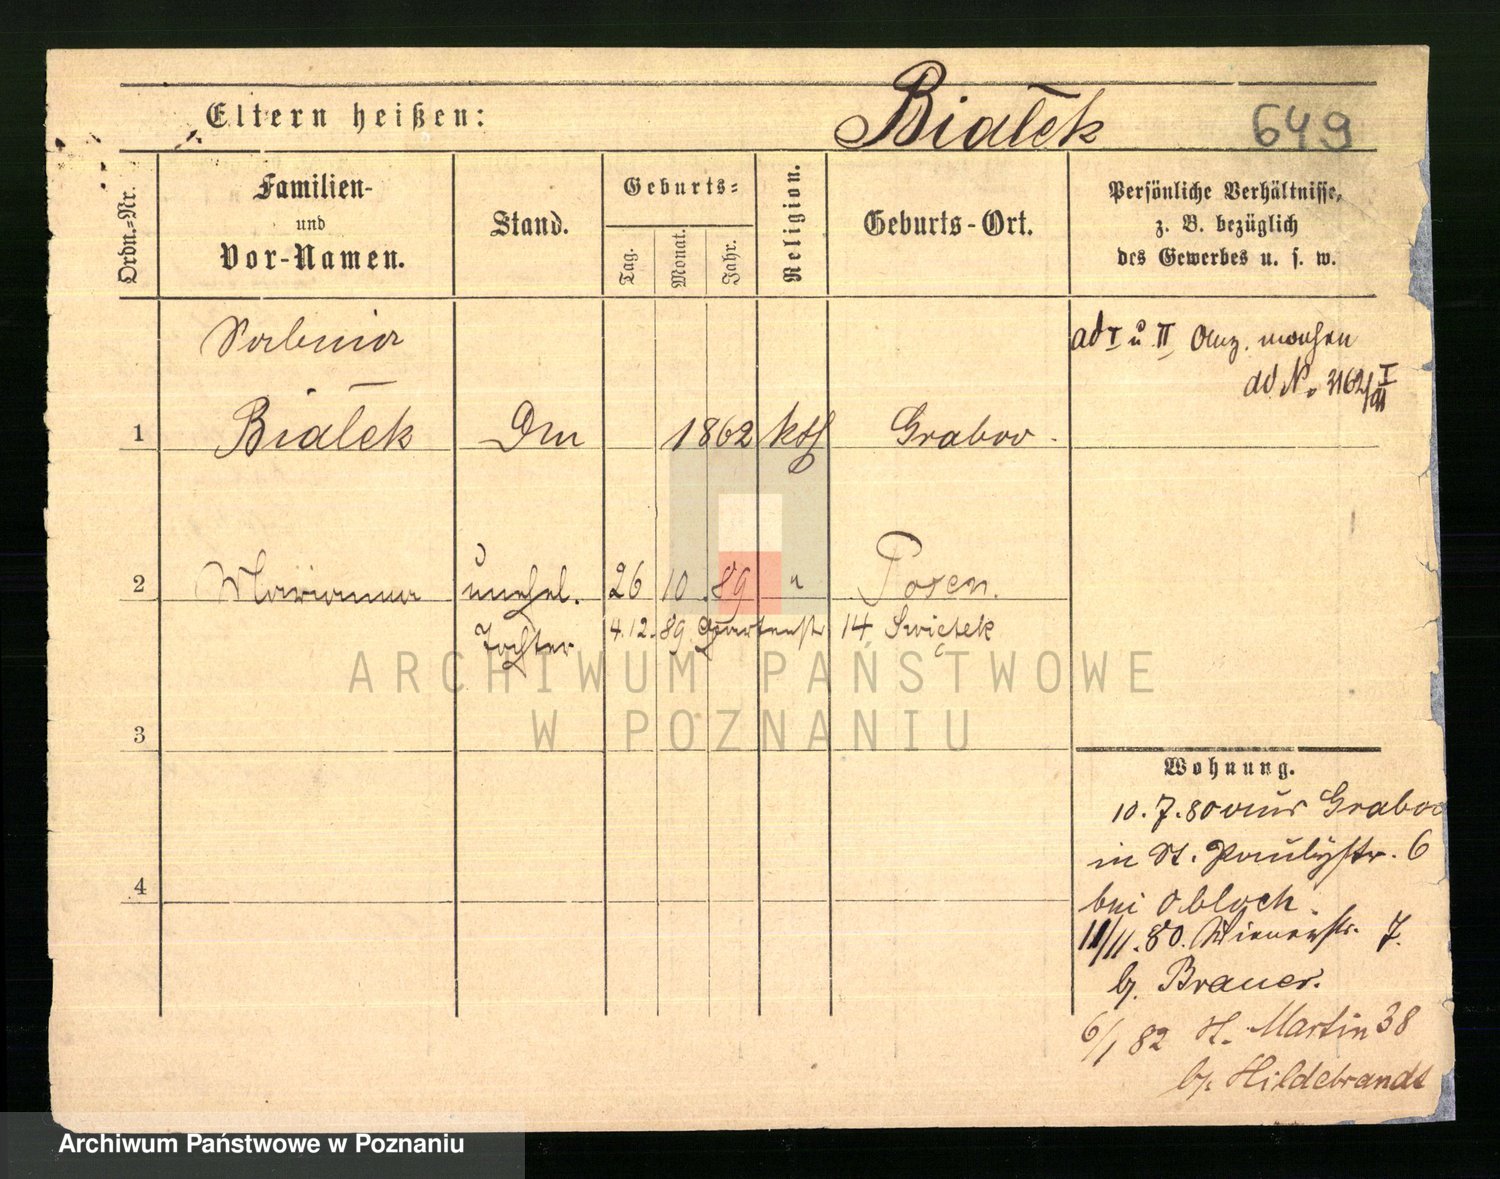 Eltern heißen: Białek 649
Ordn.-Nr.
Familien-
und
Vor-Namen.
Stand.
Geburts-
Tag. Monat. Jahr.
Religion.
Geburts-Ort.
Persönliche Verhältnisse,
z. B. bezüglich
des Gewerbes u. s. w.
ad I u II Anz. machen
ad N. 3162/I
Sabina
1 Białek Dm 1862 kth Grabow
2 Marianna unehel. 26 10 89 " Posen.
Tochter 4.12.89 Gartenstr 14 Swiętek
3
4
Wohnung.
10.7.80 aus Grabow
in St. Paulistr. 6
bei Obloch
11/11.80. Wienerstr. 7.
b. Brauer.
6/1 82 St. Martin 38
b. Hildebrandt
ARCHIWUM PAŃSTWOWE
W POZNANIU
Archiwum Państwowe w Poznaniu